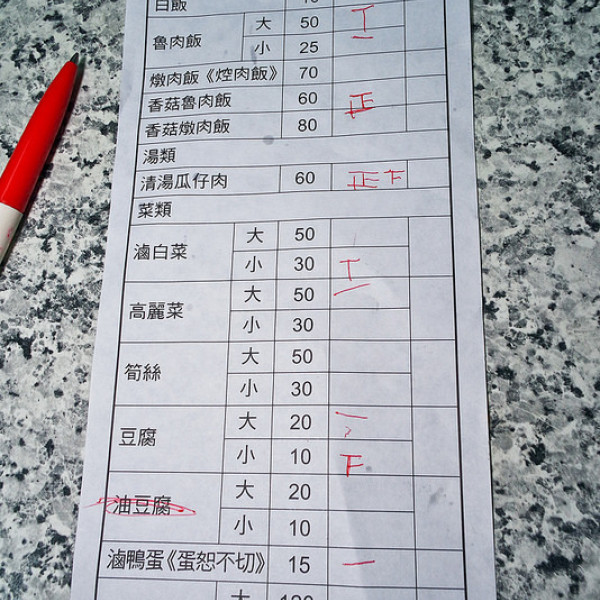 白飯
魯肉飯 大 50 丅
小 25 一
燉肉飯《焢肉飯》 70
香菇魯肉飯 60 正
香菇燉肉飯 80
湯類
清湯瓜仔肉 60 正下
菜類
滷白菜 大 50
小 30 丅
高麗菜 大 50 一
小 30
筍絲 大 50
小 30
豆腐 大 20 一
小 10 下
油豆腐 大 20
小 10
滷鴨蛋《蛋恕不切》 15 一
大